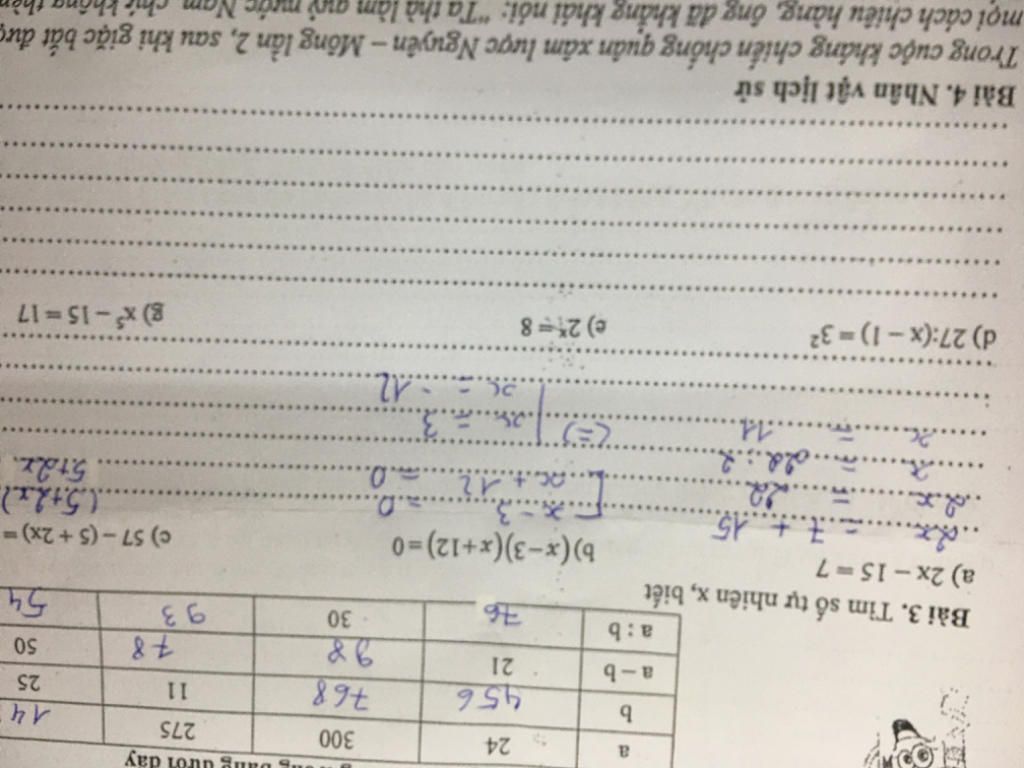 bảng dưới đây
a 24 300 275 14
b 456 768 11 25
a – b 21 98 78 50
a : b 76 30 93 54
Bài 3. Tìm số tự nhiên x, biết
a) 2x – 15 = 7 b) (x–3)(x+12) = 0 c) 57 – (5 + 2x) =
2x = 7 + 15 [ x - 3 = 0 (5+2x)
2x = 22 x + 12 = 0 5+2x
x = 22 : 2
x = 11 (=) | x = 3
x = -12
d) 27:(x – 1) = 3² e) 2ˣ = 8 g) x⁵ – 15 = 17
Bài 4. Nhân vật lịch sử
Trong cuộc kháng chiến chống quân xâm lược Nguyên – Mông lần 2, sau khi giặc bắt đượ
mọi cách chiêu hàng, ông đã khẳng khái nói: "Ta thà làm quỷ nước Nam, chứ không